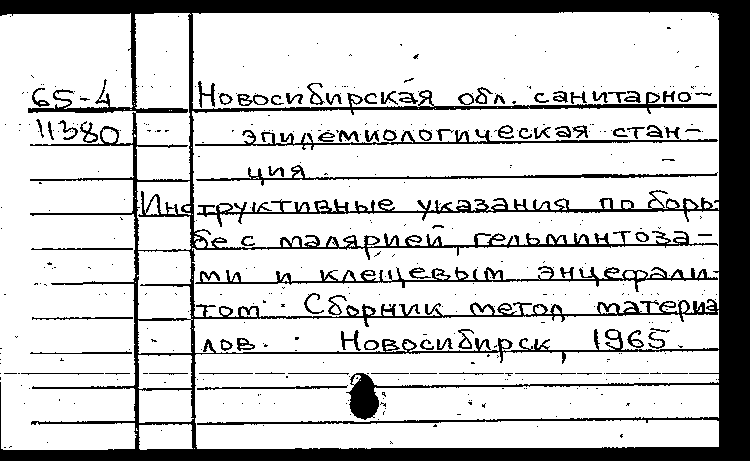 65-4 Новосибирская обл. санитарно-
11380 эпидемиологическая стан-
ция
Инструктивные указания по борь-
бе с малярией, гельминтоза-
ми и клещевым энцефали-
том. Сборник метод. материа
лов. Новосибирск, 1965.